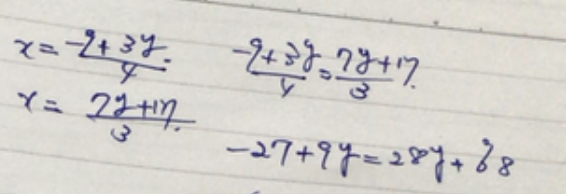 x = (-9+3y)/4
(-9+3y)/4 = (7y+17)/3
x = (7y+17)/3
-27+9y=28y+68